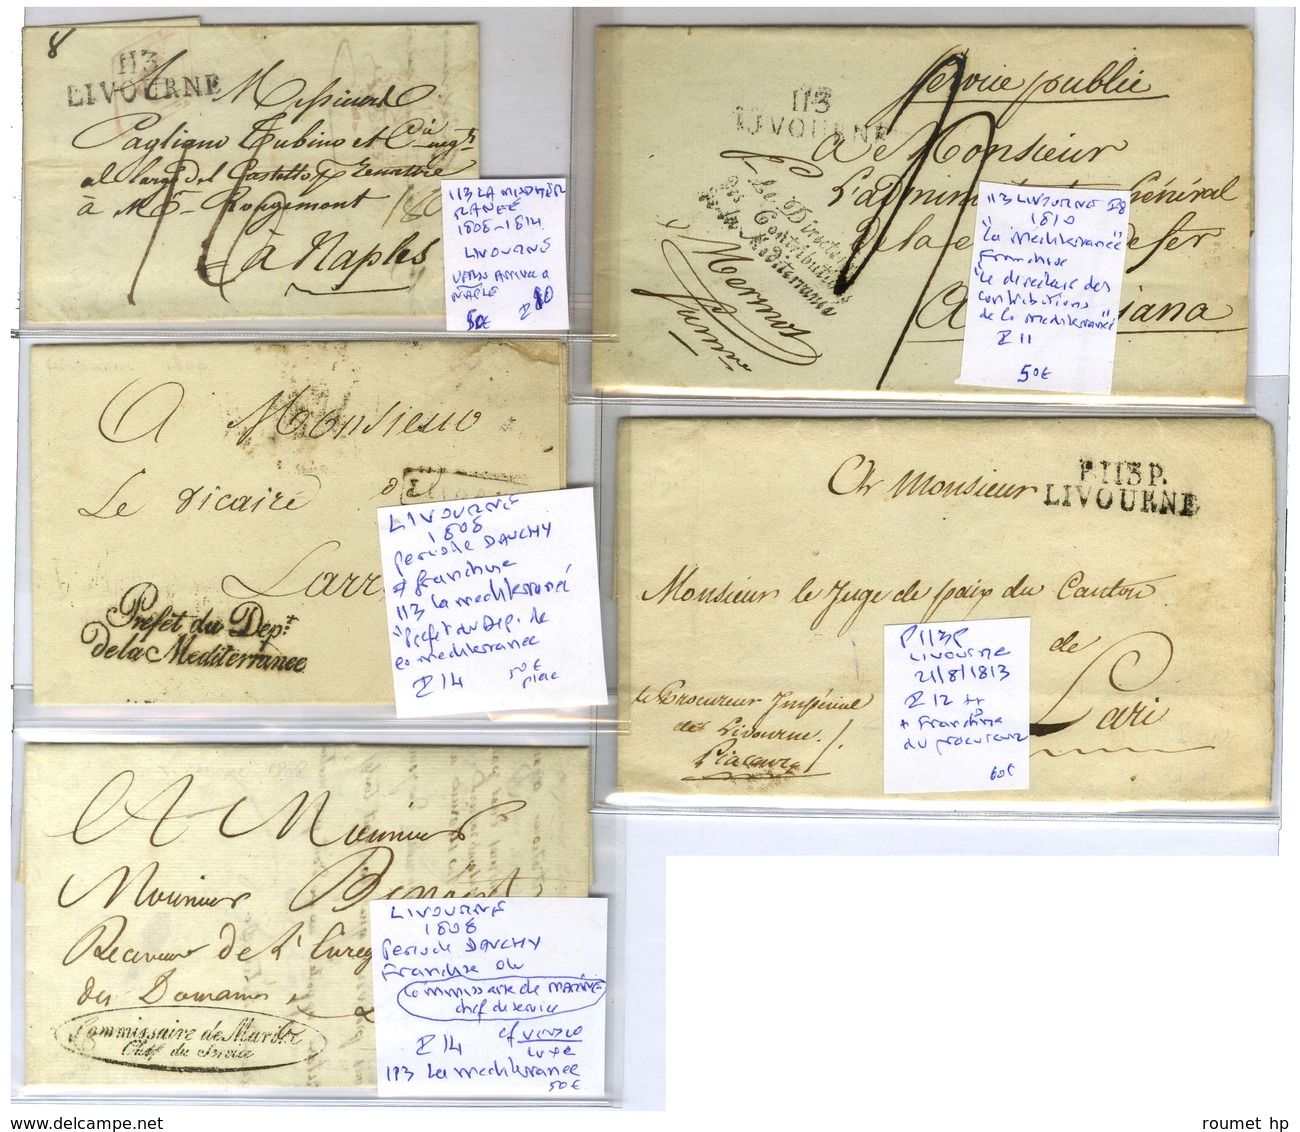 8
113
LIVOURNE
Messieurs
Pagliano Rubino et
al largo del Castello
à Mr. Rougemont
à Naples
113 LA MEDITER
RANEE
1808-1814
LIVOURNE
VERSO ARRIVEE A
NAPLE
50€
I 10
113
LIVOURNE
Service publie
A Monsieur
L'administrateur Général
de la
A
Le Directeur
des Contributions
de la Mediterranée
113 LIVOURNE 28
1810
"La mediterranée"
Franchise
"Le directeur des
contributions
de la mediterranée"
I 11
50€
A Monsieur
Le vicaire
Larr
Prefet du Dept.
de la Mediterranee
LIVOURNE
1808
periode DAUCHY
+ franchise
113 la mediterranée
"Prefet du Dep. de
la mediterranée
I 14
50€
piece
P.113P.
LIVOURNE
A Monsieur
Monsieur le Juge de paix du Canton
de
Lari
le Procureur Impérial
de Livourne.
P113P
LIVOURNE
21/8/1813
I 12
+ Franchise
du procureur
60€
A Monsieur
Monsieur
Receveur de l'Enreg
des Domaines
Commissaire de Marine
Chef du Service
LIVOURNE
1808
Periode DAUCHY
Franchise du
Commissaire de MARINE
chef de service
I 14
cf VERSO
LUXE
113 La mediterranée
50€
www.delcampe.net
roumet hp